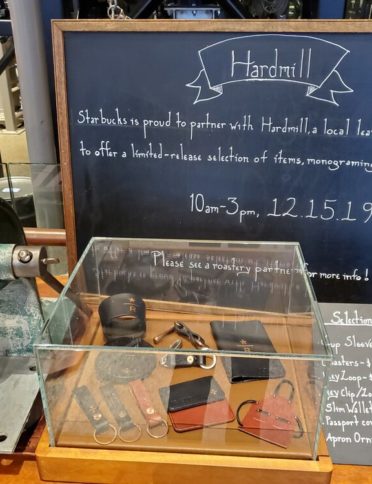 Hardmill
Starbucks is proud to partner with Hardmill, a local
to offer a limited-release selection of items, monograming
10am-3pm, 12.15.19
Please see a roastery partner for more info!
Selection
Sleeve
Loop
Clip/
Wallet
Passport
Apron Orn